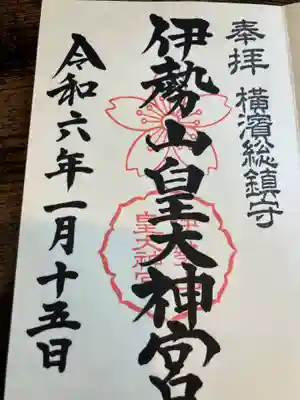 奉拝 横濱総鎮守
伊勢山皇大神宮
令和六年一月十五日